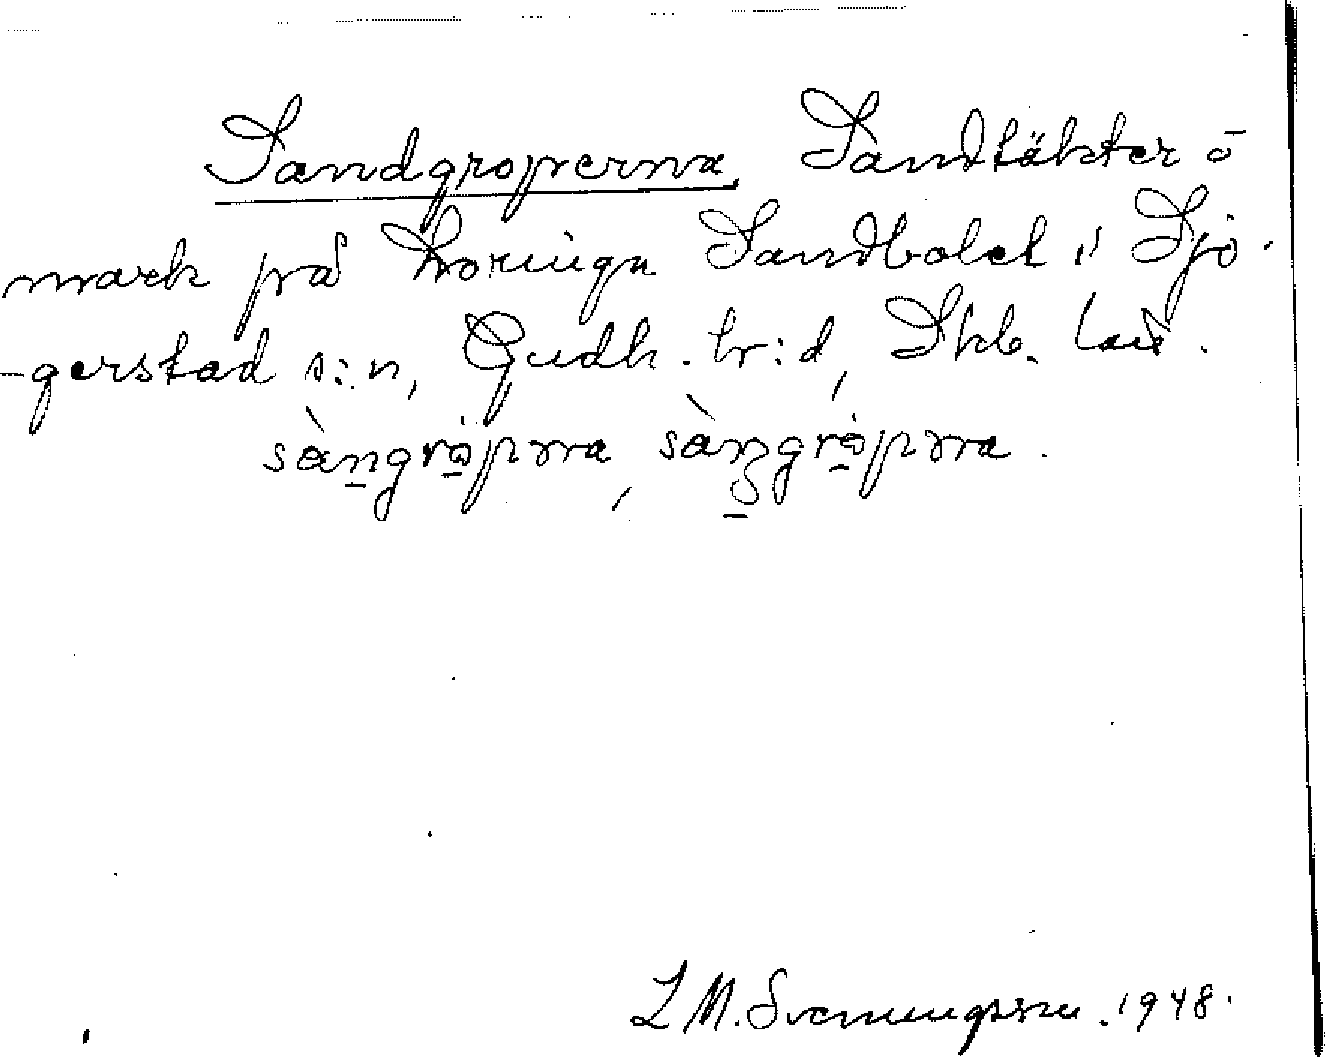 Sandgroperna. Sandtäkter o
mark på Koringa Sandbolet i Sjö-
-gerstad s:n, Gudh. hr:d, Skb. län.
sàngrȯpṇa, sàngrȯpṇa.
L M. Svenungsson. 1948.